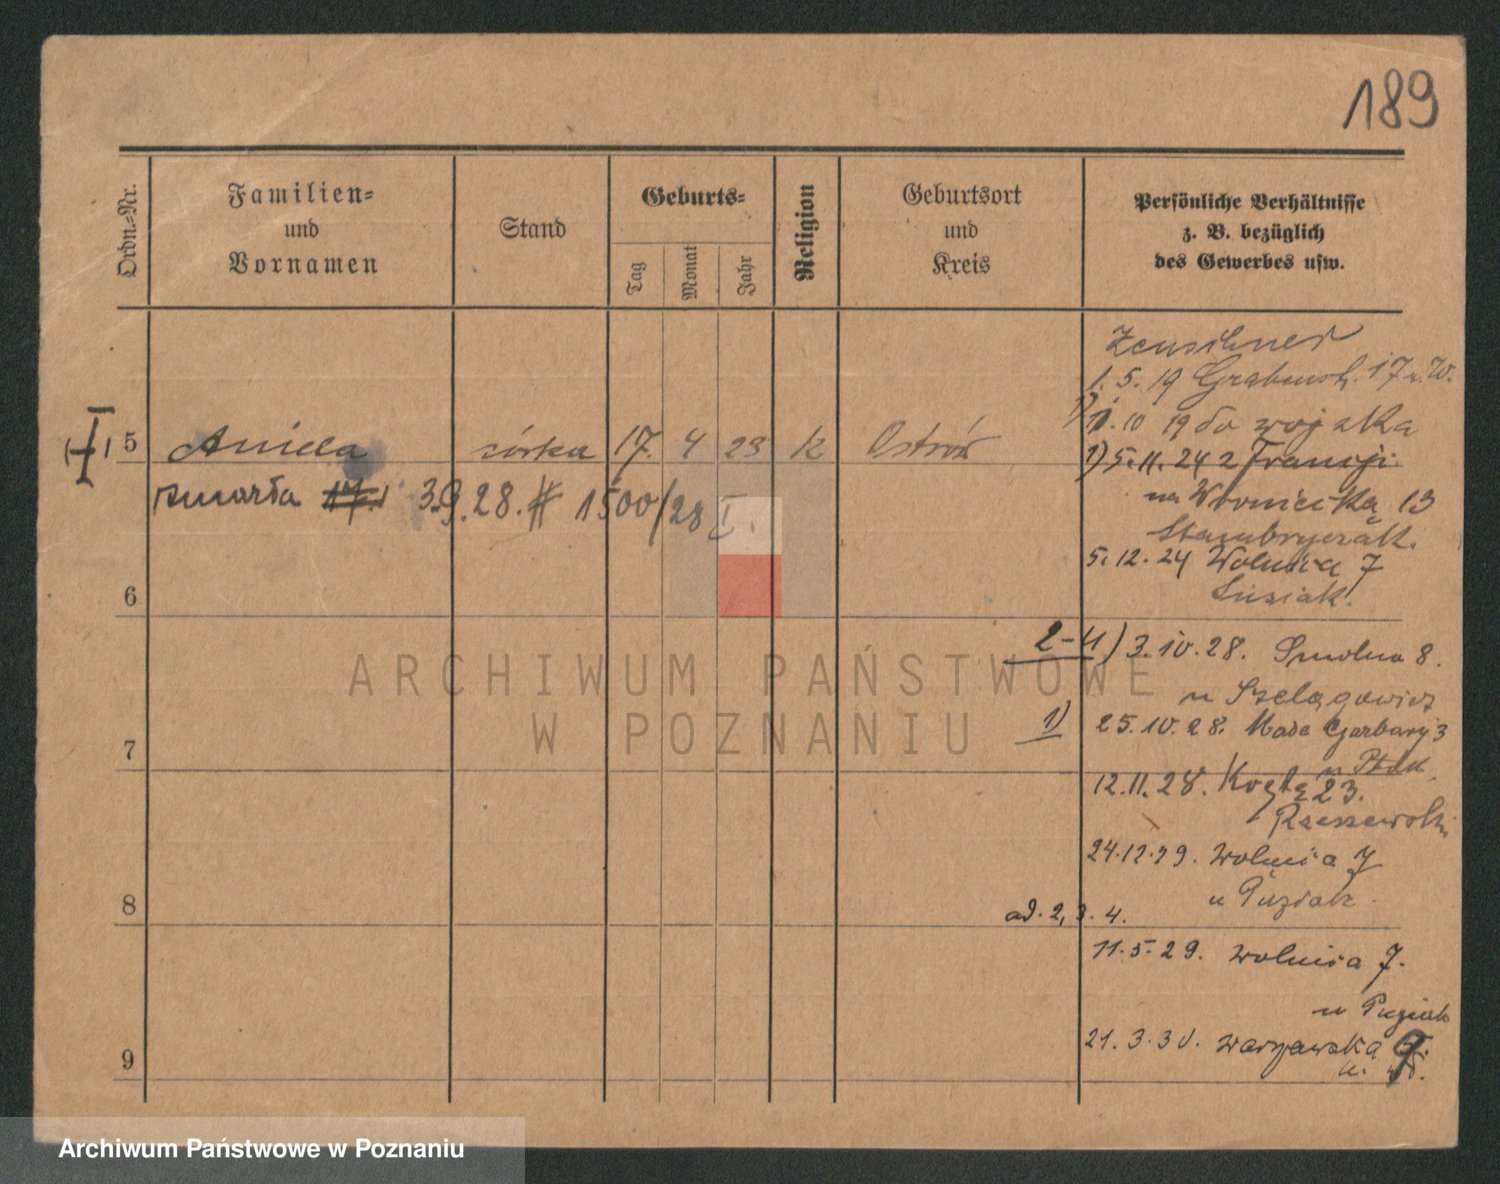 189
Ordn.-Nr.
Familien-
und
Vornamen
Stand
Geburts-
Tag
Monat
Jahr
Religion
Geburtsort
und
Kreis
Persönliche Verhältnisse
z. B. bezüglich
des Gewerbes usw.
1. 5. 19 17
1) 1. 10 19 do wojska
5 Aniela córka 17. 4 23 k Ostrów
1) 5. 11. 24 z Francji
zmarła 17. 3.9.28. # 1500/28 I.
13
5. 12. 24 Wolnica 7
6
2-4) 3. 10. 28. Smolna 8.
u Szelągowicz
1) 25. 10. 28. Małe Garbary 3
7
12. 11. 28. 23.
Rzeszewski
24. 12. 29. Wolnica 7
u
8
ad. 2, 3. 4.
11. 5. 29. Wolnica 7.
u
21. 3. 30. Warszawska
9
ARCHIWUM PAŃSTWOWE
W POZNANIU
Archiwum Państwowe w Poznaniu